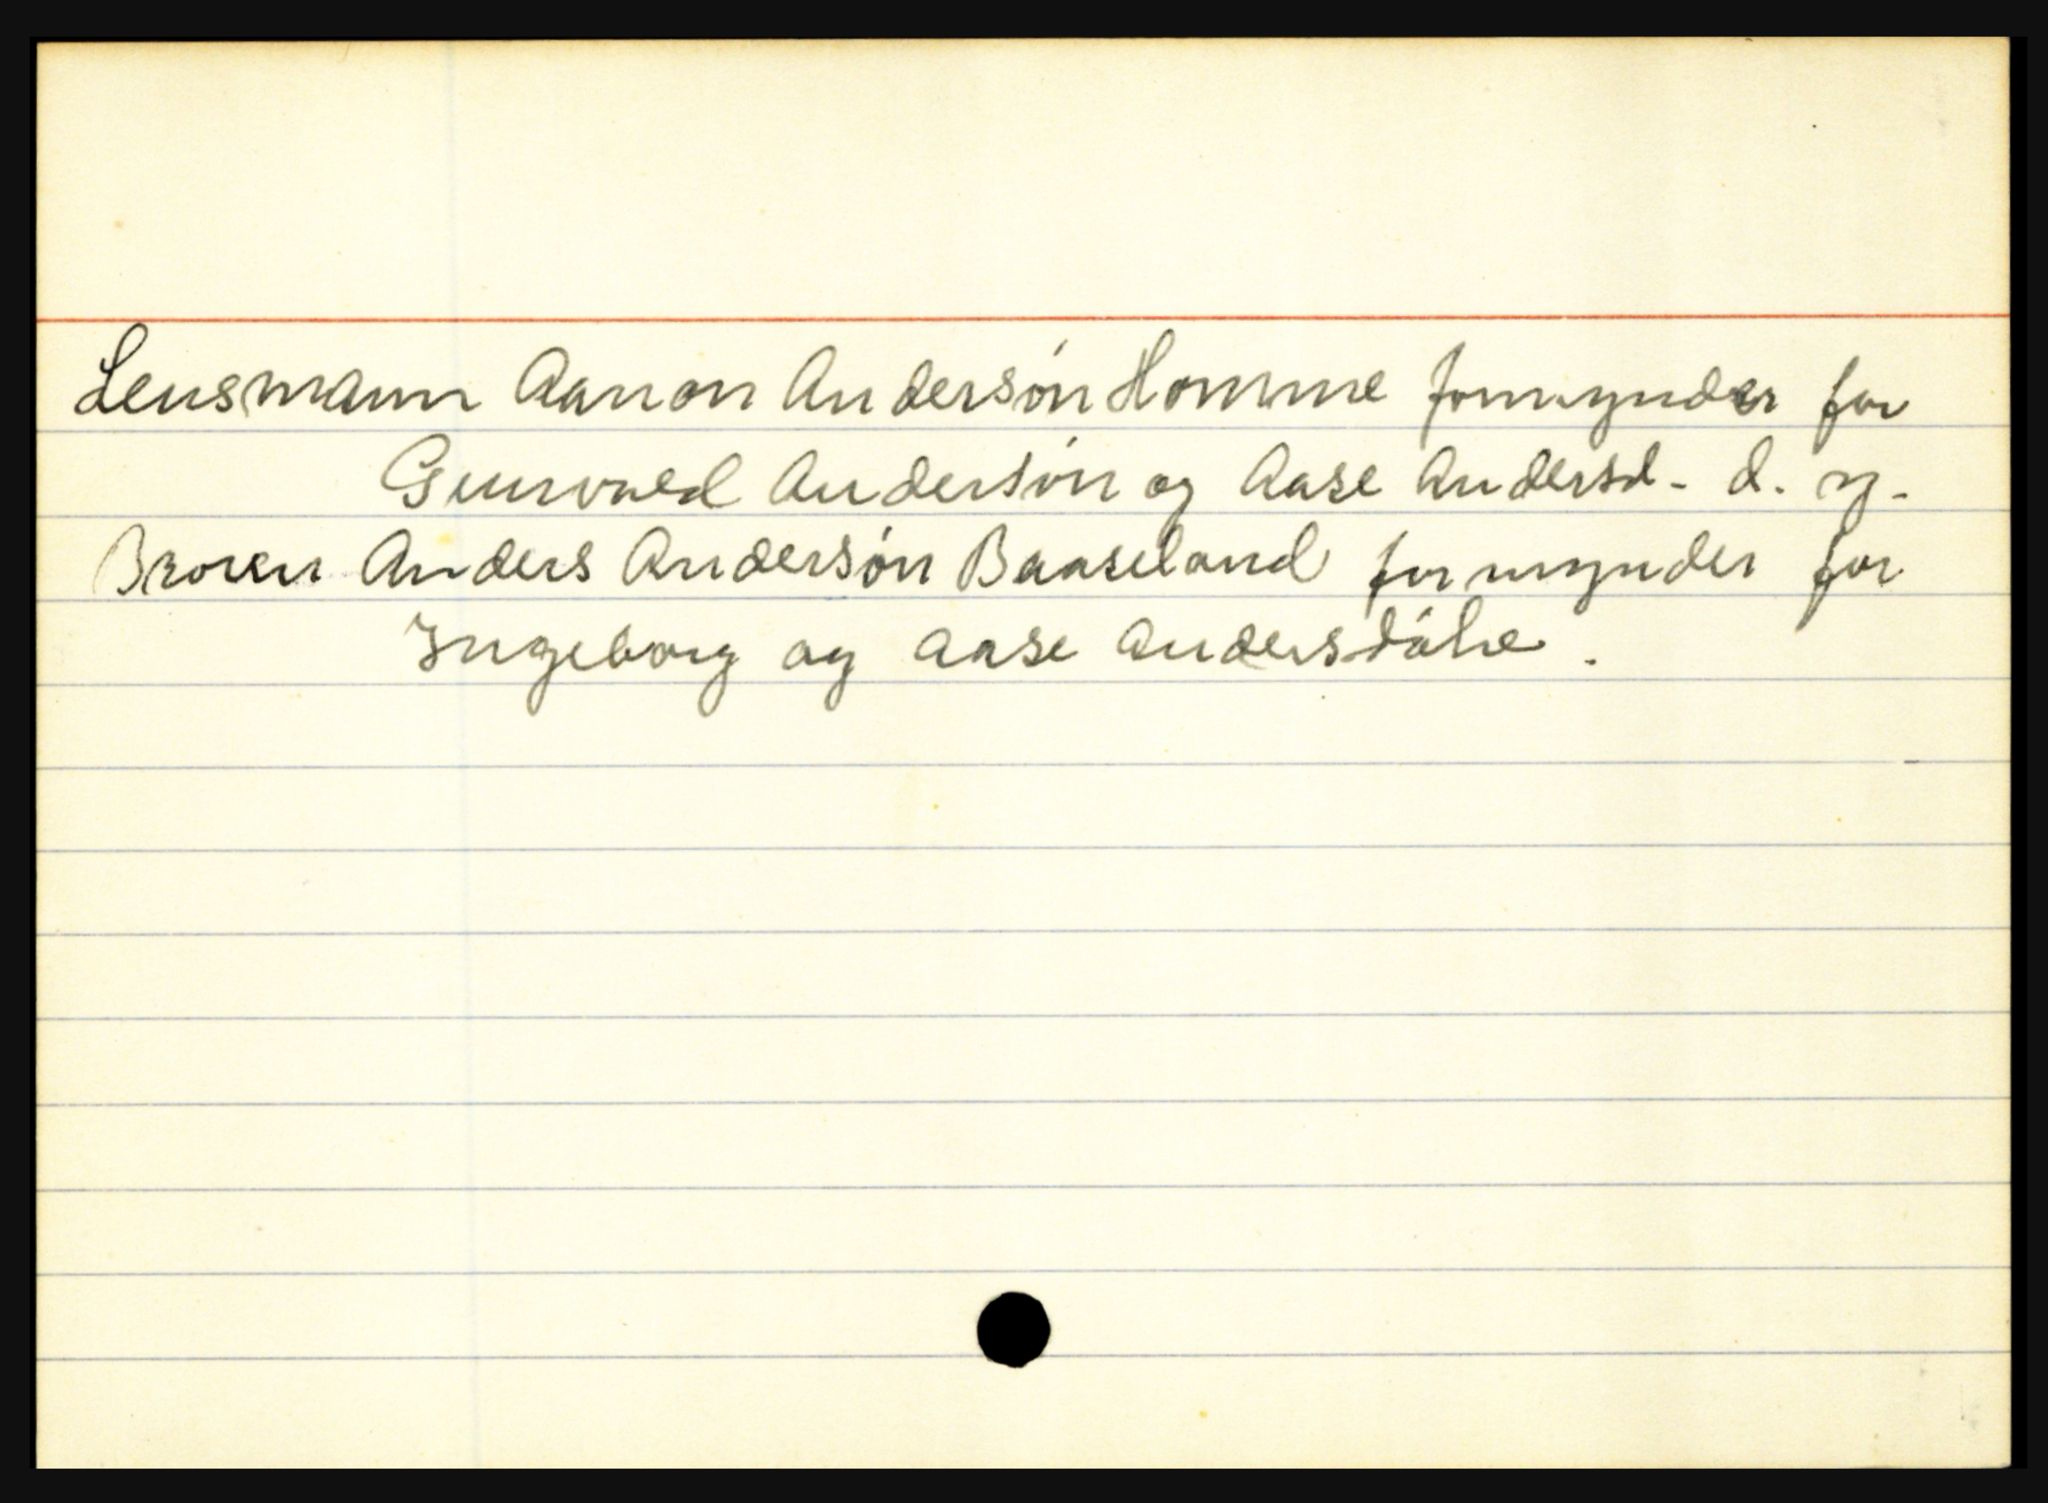 Lensmann Aanon Andersøn Homme formynder for
Gunvald Andersøn og Aase Andersd. d. y.
Broren Anders Andersøn Baaseland formynder for
Ingeborg og Aase Andersdåtre.